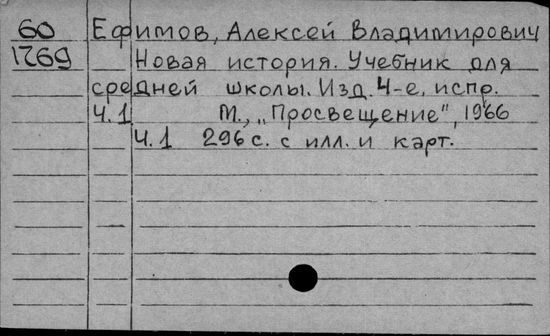 60 Ефимов, Алексей Владимирович
1269 Новая история. Учебник для
средней школы. Изд. 4-е, испр.
Ч.1 М., „Просвещение", 1966
Ч.1 296 с. с илл. и карт.